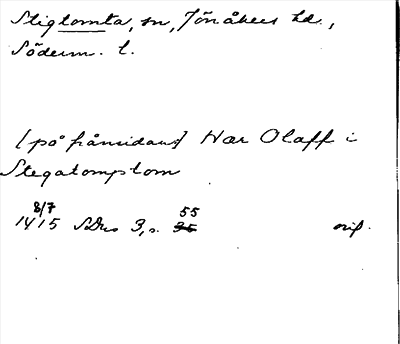 Stigtomta, sn, Jönåkers hd.,
Söderm. l.
[på frånsidan] Hær Olaff i
Stegatomptom
8/7
1415 SDns 3, s. 55
orig.